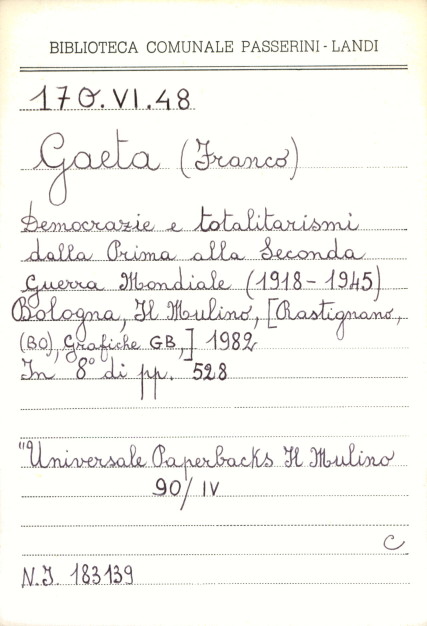 BIBLIOTECA COMUNALE PASSERINI-LANDI
170.VI.48
Gaeta (Franco)
Democrazie e totalitarismi
dalla Prima alla Seconda
Guerra Mondiale (1918-1945)
Bologna, Il Mulino, [Rastignano,
(BO), Grafiche GB,] 1982
In 8° di pp. 528
"Universale Paperbacks Il Mulino
90/IV
C
N.I. 183139